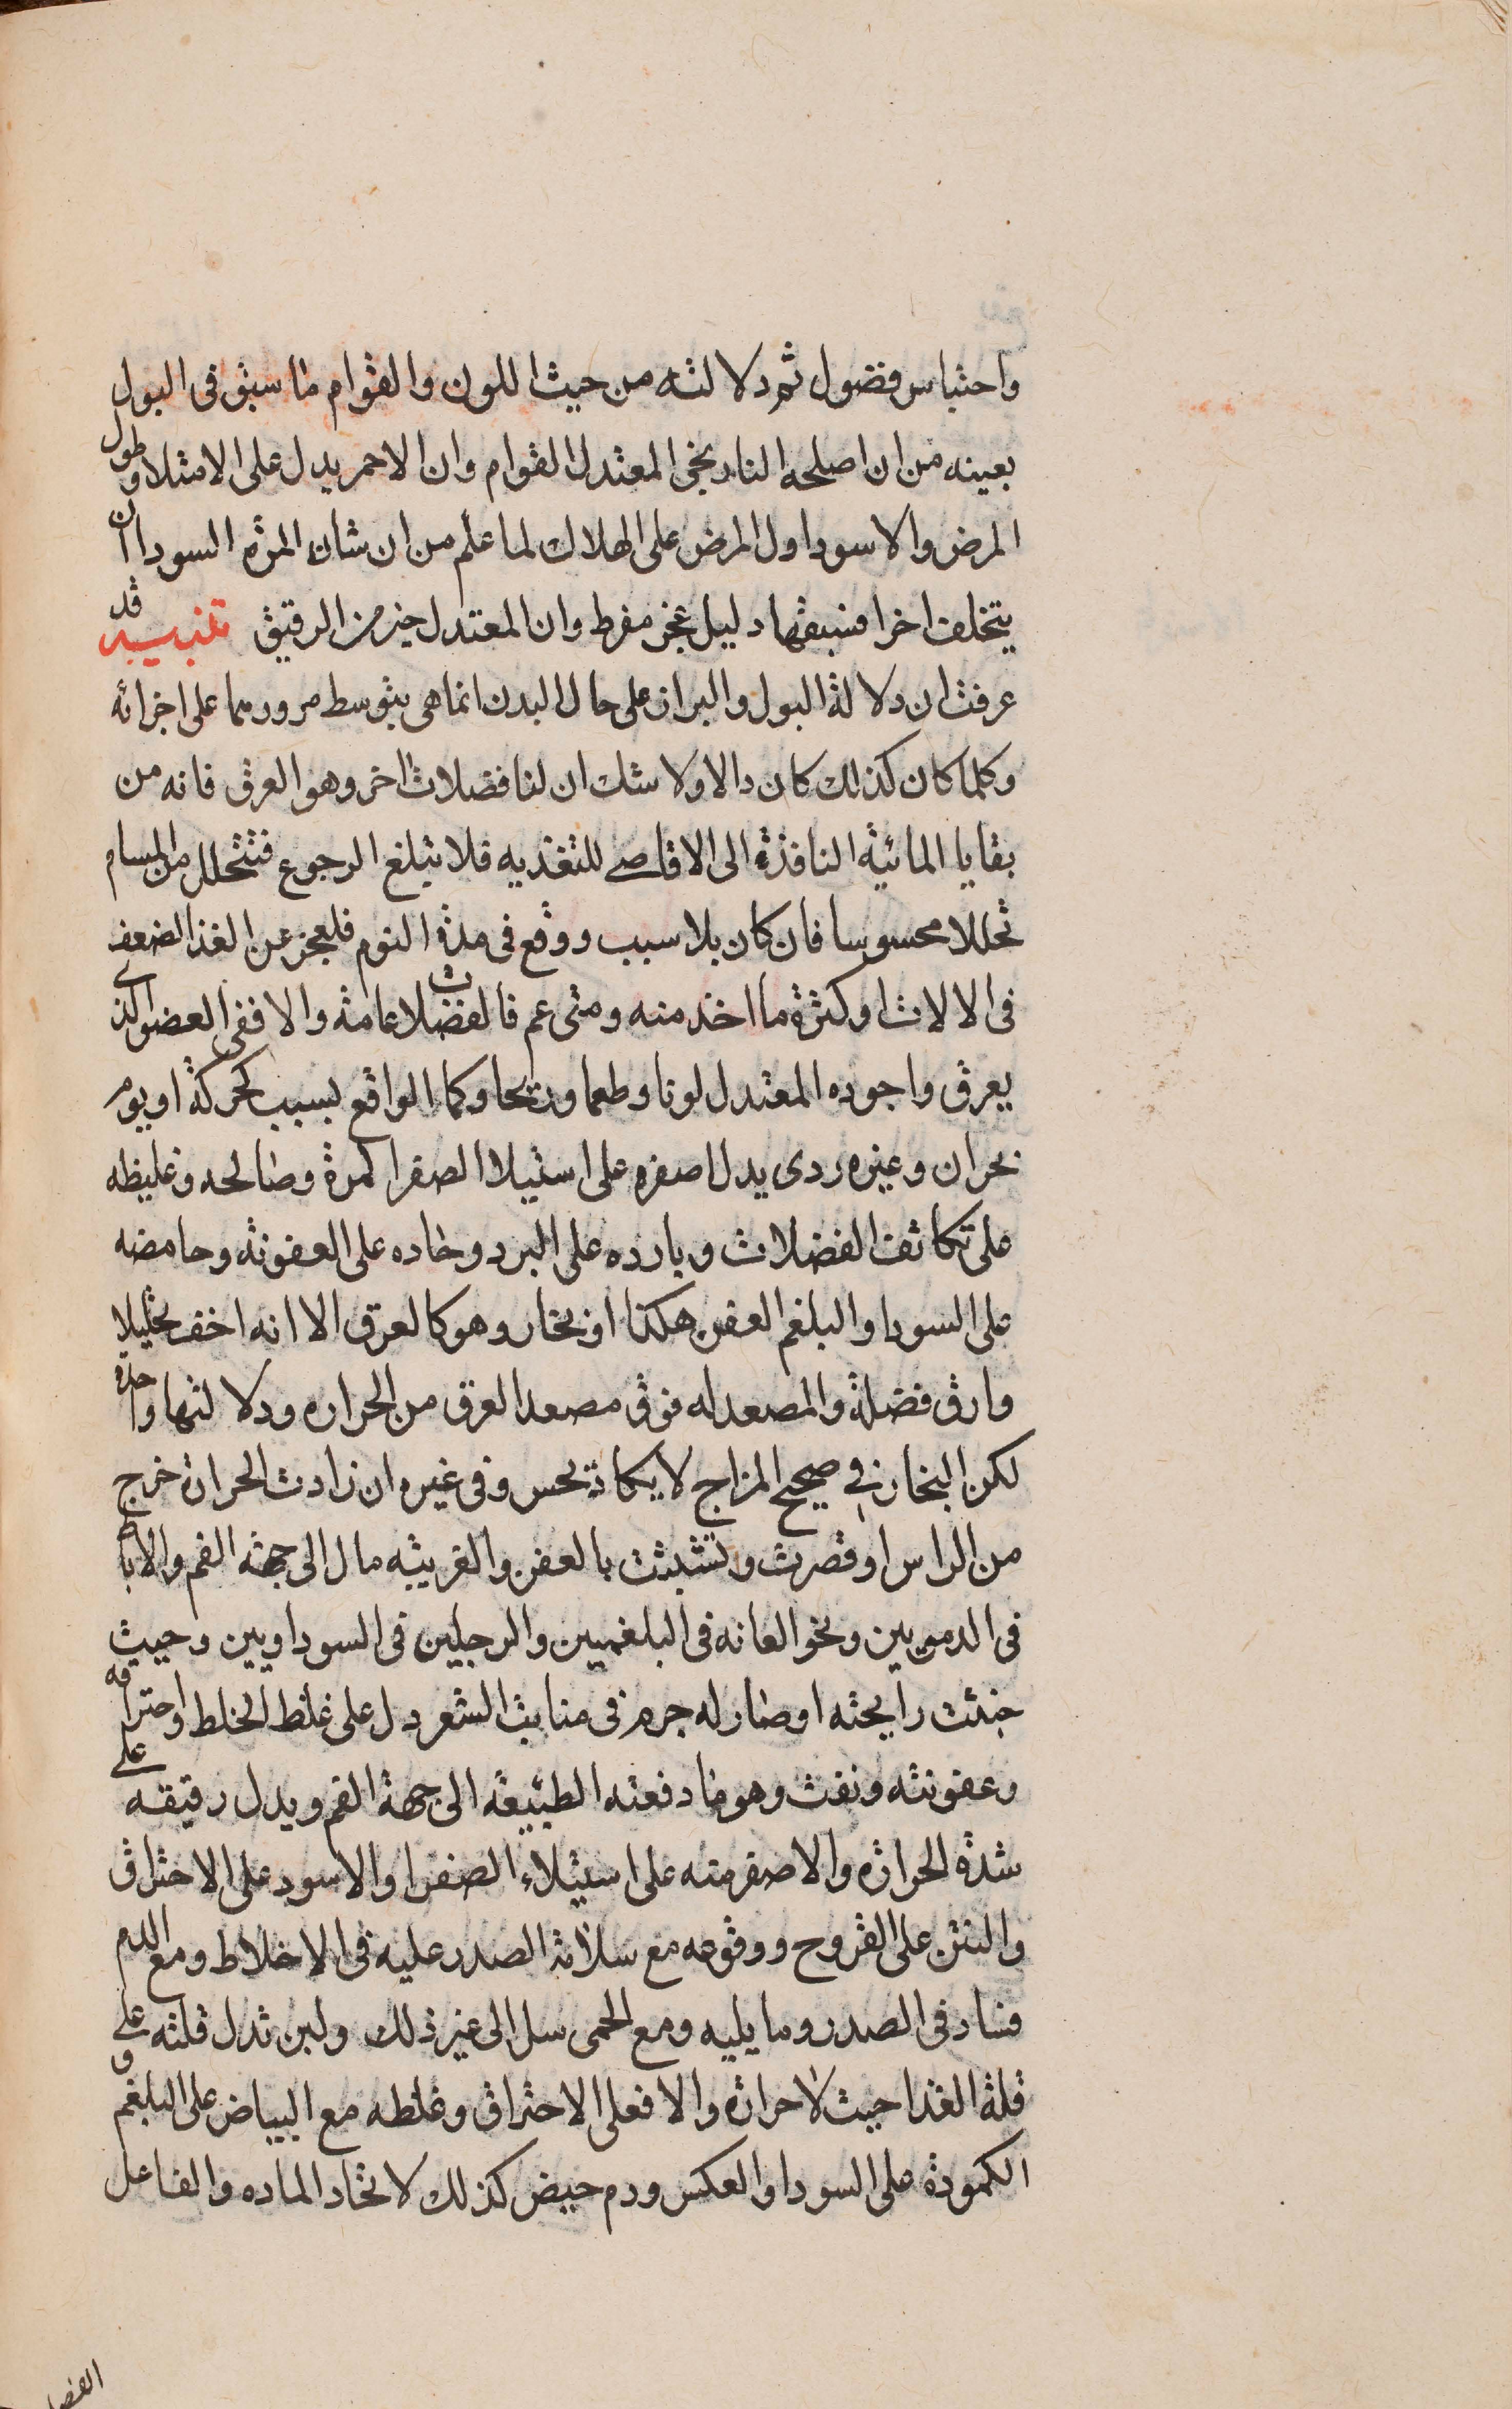 واحتباس فضول ثم دلالته من حيث اللون والقوام ما سبق في البول
بعينه من ان اصلحه النارنجي المعتدل القوام وان الاحمر يدل على الامتلا وطول
المرض والاسود اول المرض على الهلاك لما علم من ان شان المرة السودا ان
يتخلف اخرا فسبقها دليل عجز مفرط وان المعتدل خير من الرقيق تنبيه قد
عرفت ان دلالة البول والبراز على حال البدن انما هي بتوسط مرورهما على اجزائه
وكلما كان كذلك كان دالا ولا شك ان لنا فضلات اخر وهو العرق فانه من
بقايا المائية النافذة الى الاقاصي للتغذيه فلا يبلغ الرجوع فتتحلل من المسام
تحللا محسوسا فان كان بلا سبب ووقع في مدة النوم فلعجز عن الغذا لضعف
في الالات او كثرة ما اخذ منه ومتى عم فالفضلات عامة والا ففي العضو الذي
يعرق واجوده المعتدل لونا وطعما وريحا وكما الواقع بسبب كحركة او يوم
بحران وغيره ردي يدل اصفره على استيلا الصفرا كمرة ومالحه وغليظه
على تكاثف الفضلات وبارده على البرد وحاده على العفونة وحامضه
على السودا والبلغم العفن هكذا او بخار وهو كالعرق الا انه اخف تحليلا
وارق فضلة والمصعد له فوق مصعد العرق من الحراره ودلالتها واحدة
لكن البخار في صحيح المزاج لا يكاد يحس وفي غيره ان زادت الحرارة خرج
من الراس او قصرت وتشبثت بالعفن والغريبه مال الى جهة الفم والاباط
في الدمويين ونحو العانه في البلغميين والرجلين في السوداويين وحيث
خبثت رايحته او صار له جرم في منابت الشعر دل على غلظ الخلط واحتراقه
وعفونته ونفث وهو ما دفعته الطبيعة الى جهة الفم ويدل رقيقه على
شدة الحرارة والاصفر منه على استيلاء الصفرا والاسود على الاحتراق
والنتن على القروح ووقوعه مع سلامة الصدر عليه في الاخلاط ومع الدم
فساد في الصدر وما يليه ومع الحمى سل الى غير ذلك ولبن تدل قلته على
قلة الغذا حيث لا حرارة والا فعلى الاحتراق وغلظه مع البياض على البلغم و
الكمودة على السودا والعكس ودم حيض كذلك لاتحاد الماده والفاعل